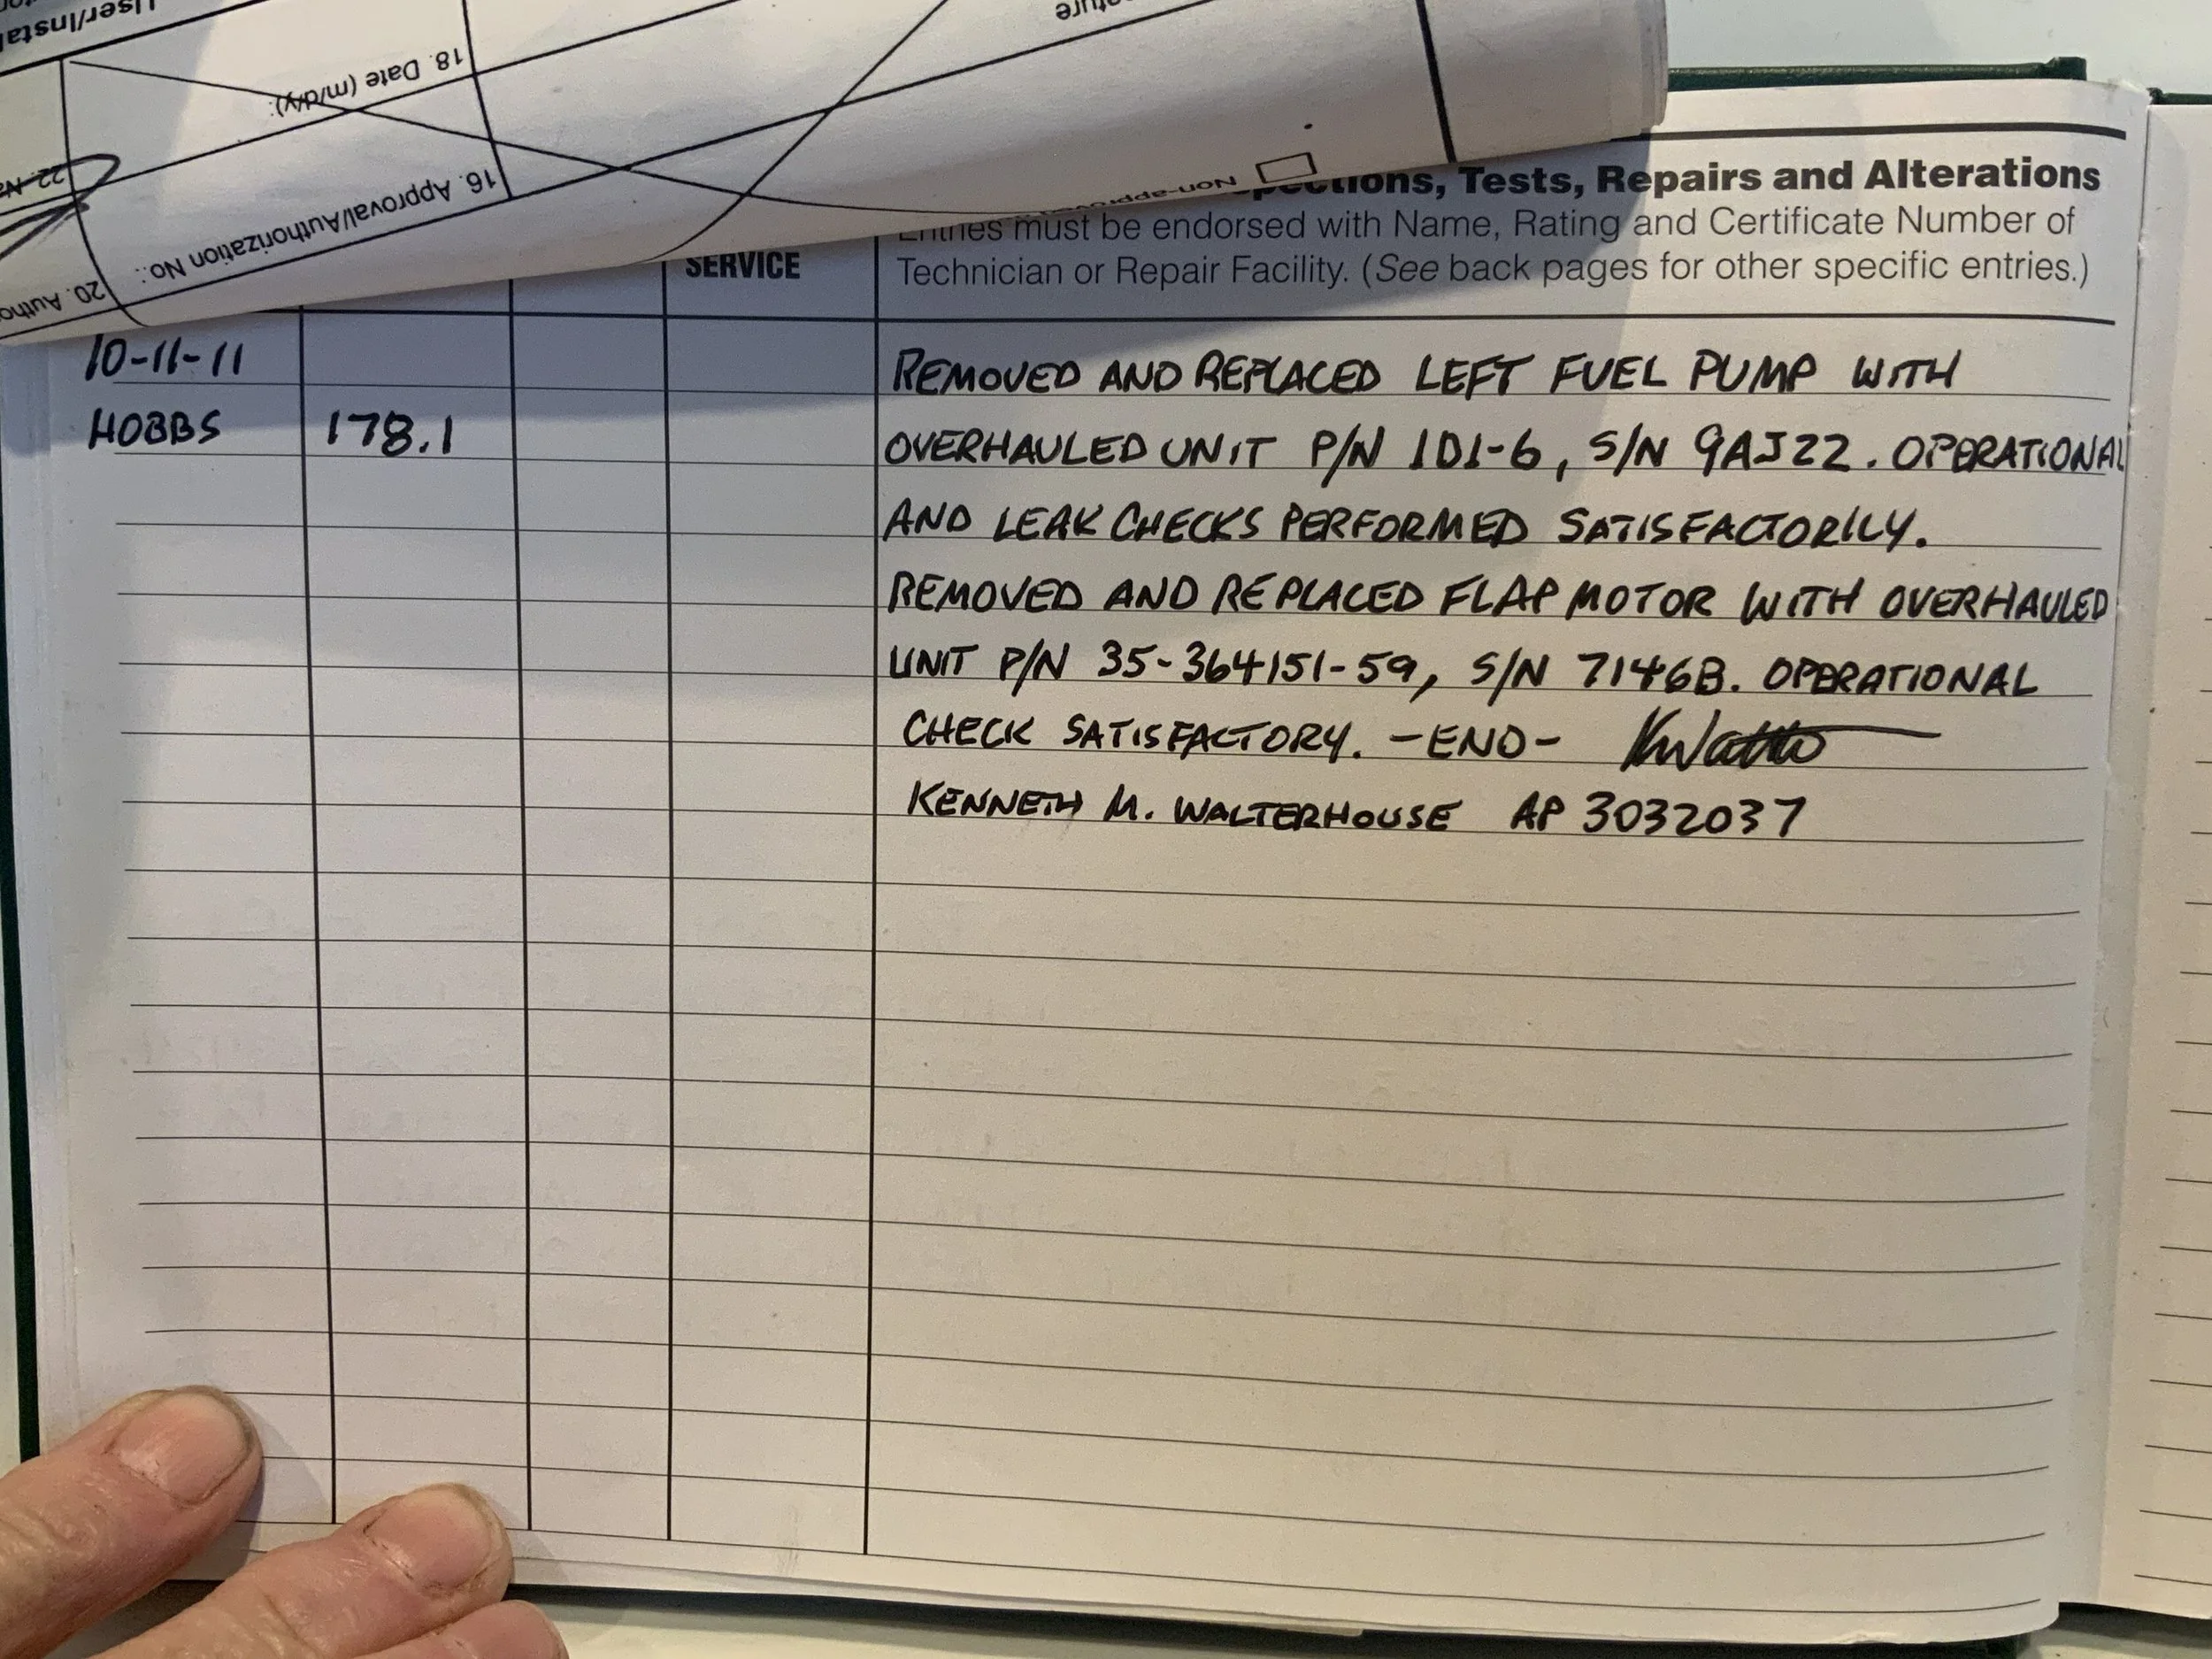 18. Date (m/d/y):
16. Approval/Authorization No.:
Tests, Repairs and Alterations
must be endorsed with Name, Rating and Certificate Number of
SERVICE
Technician or Repair Facility. (See back pages for other specific entries.)
10-11-11
REMOVED AND REPLACED LEFT FUEL PUMP WITH
HOBBS 178.1
OVERHAULED UNIT P/N 1D1-6, S/N 9AJ22. OPERATIONAL
AND LEAK CHECKS PERFORMED SATISFACTORILY.
REMOVED AND REPLACED FLAP MOTOR WITH OVERHAULED
UNIT P/N 35-364151-59, S/N 7146B. OPERATIONAL
CHECK SATISFACTORY. -END-
KENNETH M. WALTERHOUSE AP 3032037